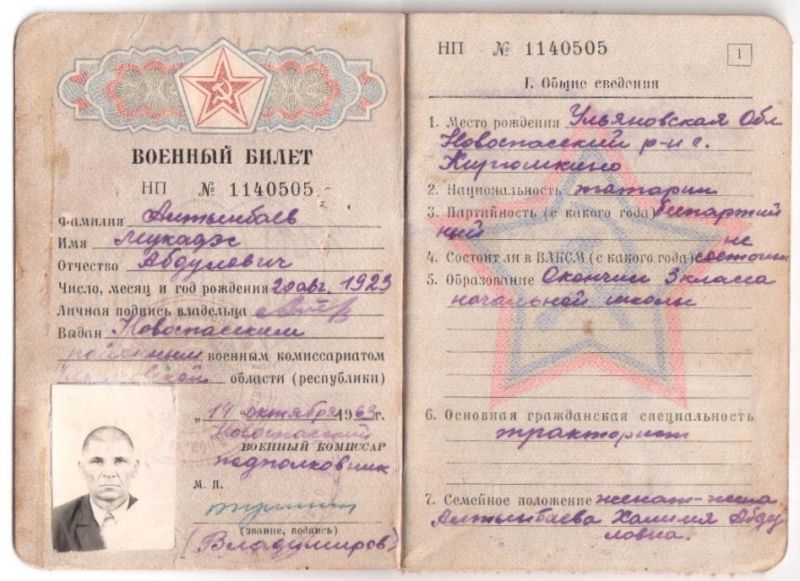 ВОЕННЫЙ БИЛЕТ
НП № 1140505
Фамилия Алтынбаев
Имя Мукадэс
Отчество Абдулович
Число, месяц и год рождения 20 авг. 1923
Личная подпись владельца
Выдан Новоспасским
районным военным комиссариатом
области (республики)
„14" октября 1963 г.
Новоспасский
ВОЕННЫЙ КОМИССАР
подполковник
М. Я.
(звание, подпись)
(Владимиров)
НП № 1140505
1
I. Общие сведения
1. Место рождения Ульяновская Обл
Новоспасский р-н с.
2. Национальность татарин
3. Партийность (с какого года) беспартий
ный
не
4. Состоит ли в ВЛКСМ (с какого года) состоит
5. Образование Окончил 3 класса
начальной школы
6. Основная гражданская специальность
тракторист
7. Семейное положение женат-жена
Алтынбаева Халимя Абду
ловна.